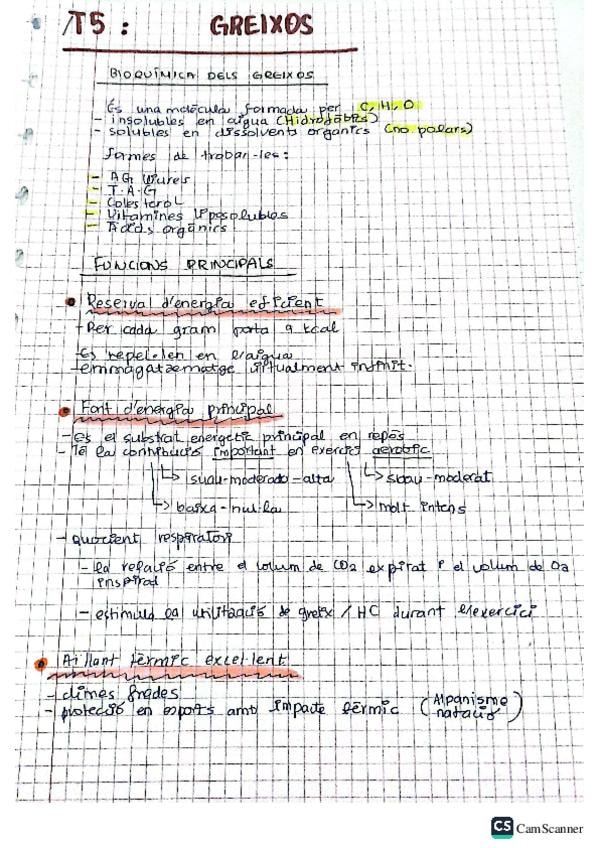 T5: GREIXOS
BIOQUÍMICA DELS GREIXOS
És una molècula formada per C, H, O
- insolubles en aigua (Hidròfobes)
- solubles en dissolvents organics (no polars)
formes de trobar-les:
- AG lliures
- T.A.G
- Colesterol
- Vitamines liposolubles
- Àcids orgànics
FUNCIONS PRINCIPALS
Reserva d'energia eficient
- Per cada gram porta 9 kcal
- Es repel·len en l'aigua
- emmagatzematge virtualment infinit.
Font d'energia principal
- es el substrat energetic principal en repòs
- Té la contribució important en exercici aerobic
↳ suau-moderada-alta ↳ suau-moderat
↳ baixa-nul·la ↳ molt intens
- quocient respiratori
- la relació entre el volum de CO2 expirat i el volum de O2
inspirat
- estimula la utilització de greix / HC durant l'exercici
Aïllant tèrmic excel·lent
- climes fredes
- protecció en esports amb impacte tèrmic (Alpanisme
natació)
CS CamScanner